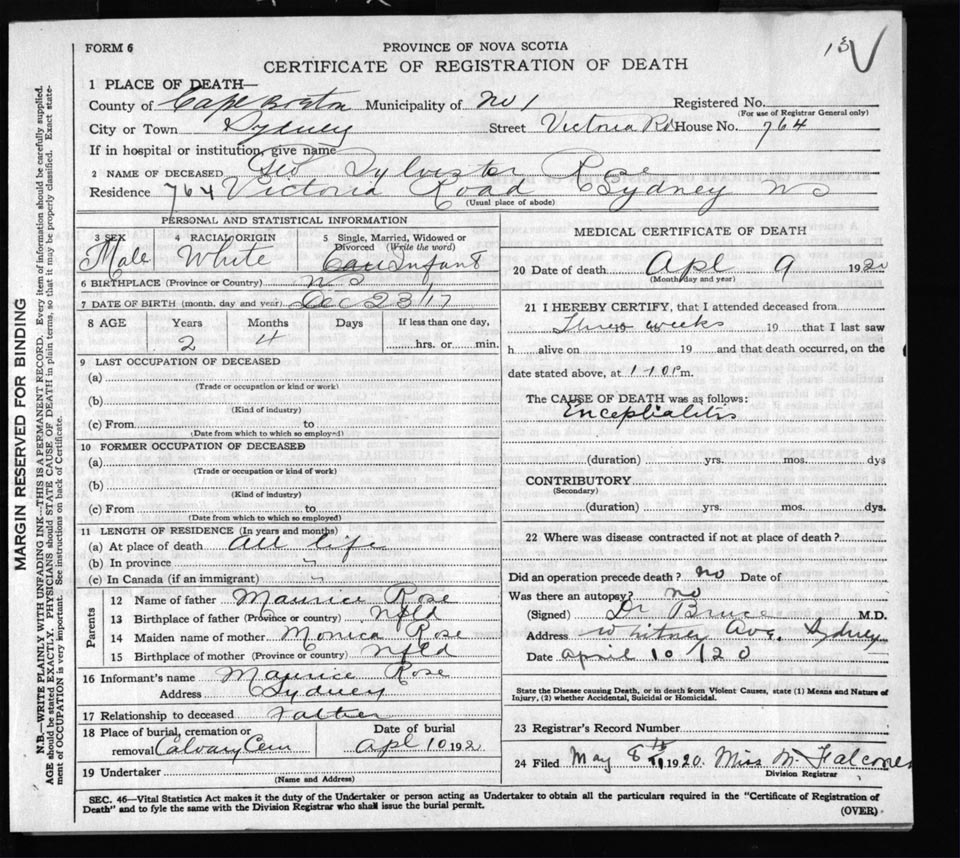 FORM 6
PROVINCE OF NOVA SCOTIA
CERTIFICATE OF REGISTRATION OF DEATH
1 PLACE OF DEATH—
County of Cape Breton Municipality of No 1 Registered No.
(For use of Registrar General only)
City or Town Sydney Street Victoria Rd House No. 764
If in hospital or institution, give name
2 NAME OF DECEASED Geo Sylvester Rose
Residence 764 Victoria Road Sydney NS
(Usual place of abode)
PERSONAL AND STATISTICAL INFORMATION
3 SEX 4 RACIAL ORIGIN 5 Single, Married, Widowed or
Divorced (Write the word)
Male White Infant
6 BIRTHPLACE (Province or Country) N S
7 DATE OF BIRTH (month, day and year) Dec 23/17
8 AGE Years Months Days If less than one day,
2 4 hrs. or min.
9 LAST OCCUPATION OF DECEASED
(a)
(Trade or occupation or kind or work)
(b)
(Kind of industry)
(c) From to
(Date from which to which so employed)
10 FORMER OCCUPATION OF DECEASED
(a)
(Trade or occupation or kind of work)
(b)
(Kind of industry)
(c) From to
(Date from which to which so employed)
11 LENGTH OF RESIDENCE (In years and months)
(a) At place of death all life
(b) In province "
(c) In Canada (if an immigrant) "
Parents
12 Name of father Maurice Rose
13 Birthplace of father (Province or country) Nfld
14 Maiden name of mother Monica Rose
15 Birthplace of mother (Province or country) Nfld
16 Informant's name Maurice Rose
Address Sydney
17 Relationship to deceased Father
18 Place of burial, cremation or Date of burial
removal Calvary Cem Apl 10 192
19 Undertaker
(Name and Address)
MEDICAL CERTIFICATE OF DEATH
20 Date of death Apl 9 1920
(Month day and year)
21 I HEREBY CERTIFY, that I attended deceased from
Three weeks 19 that I last saw
h alive on 19 and that death occurred, on the
date stated above, at 1-10 P m.
The CAUSE OF DEATH was as follows:
Encephalitis
(duration) yrs. mos. dys
CONTRIBUTORY
(Secondary)
(duration) yrs. mos. dys.
22 Where was disease contracted if not at place of death?
Did an operation precede death? no Date of
Was there an autopsy? no
(Signed) Dr Bruce M.D.
Address Whitney Ave. Sydney
Date April 10/20
State the Disease causing Death, or in death from Violent Causes, state (1) Means and Nature of
Injury, (2) whether Accidental, Suicidal or Homicidal.
23 Registrar's Record Number
24 Filed May 8th 1920. Miss M. Falconer
Division Registrar
SEC. 46—Vital Statistics Act makes it the duty of the Undertaker or person acting as Undertaker to obtain all the particulars required in the "Certificate of Registration of
Death" and to fyle the same with the Division Registrar who shall issue the burial permit.
(OVER)
MARGIN RESERVED FOR BINDING
N.B.—WRITE PLAINLY WITH UNFADING INK—THIS IS A PERMANENT RECORD. Every item of information should be carefully supplied.
AGE should be stated EXACTLY. PHYSICIANS should STATE CAUSE OF DEATH in plain terms, so that it may be properly classified. Exact state-
ment of OCCUPATION is very important. See instructions on back of Certificate.